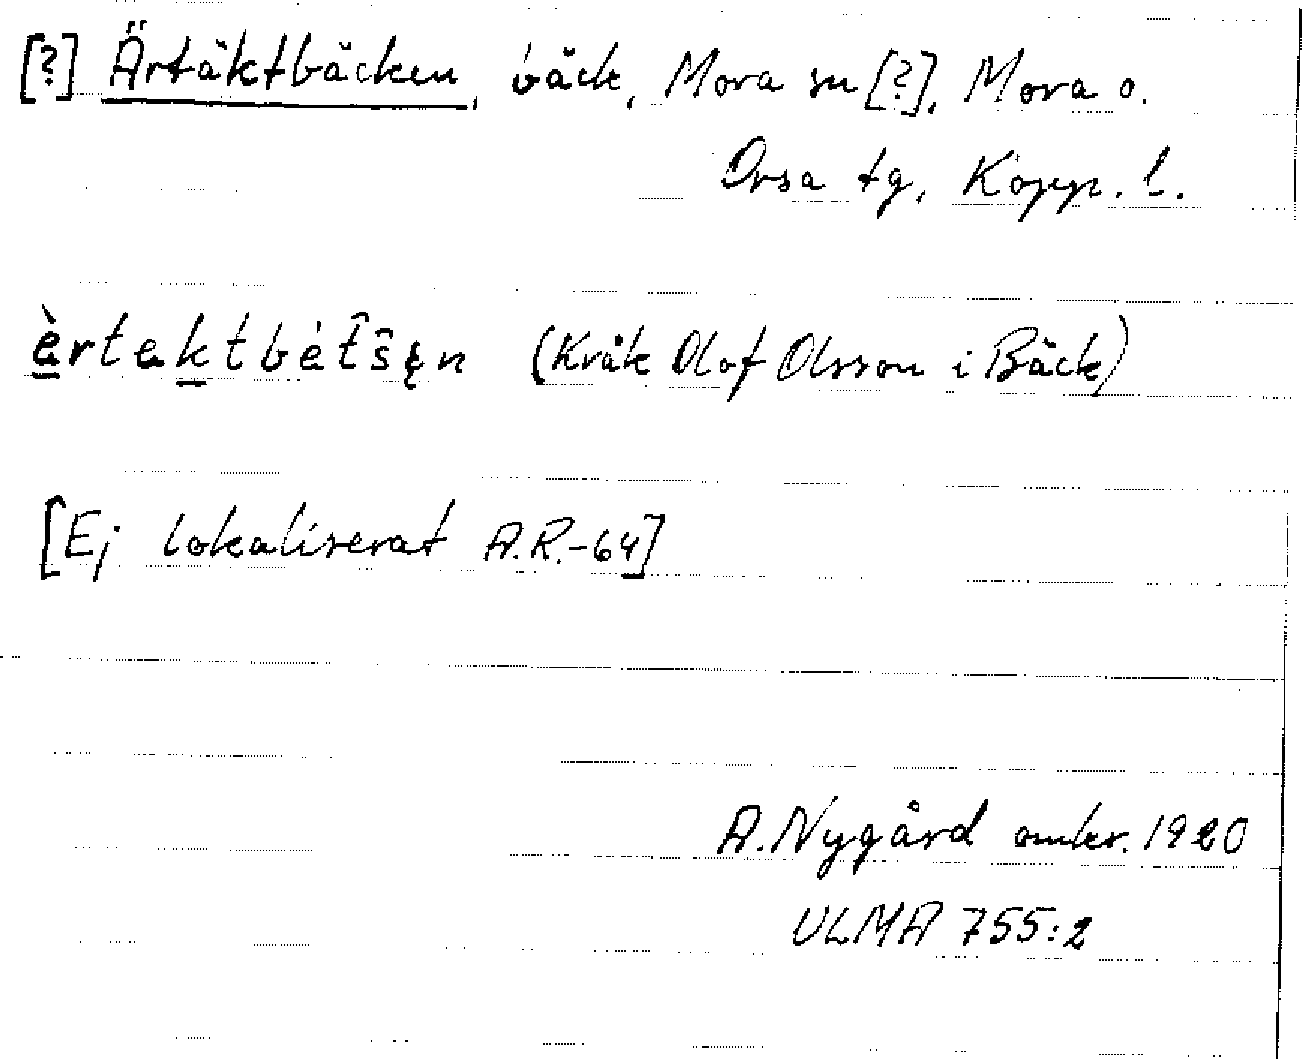 [?] Ärtäktbäcken, bäck, Mora sn [?], Mora o.
Orsa tg, Kopp. l.
èrtektbèt̂ŝęn (Kråk Olof Olsson i Bäck)
[Ej lokaliserat A.R.-64]
A. Nygård omkr. 1920
ULMA 755:2